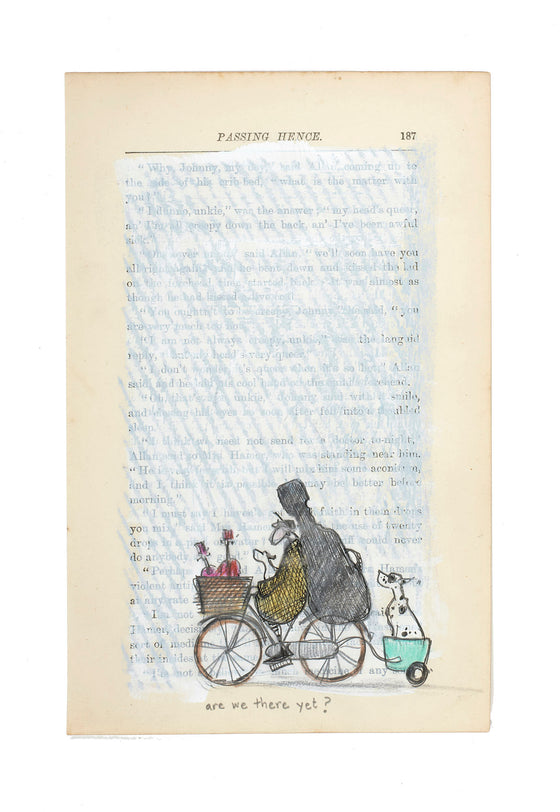 PASSING HENCE. 187
"Why, Johnny, my boy," said Allan, coming up to
the side of his crib-bed, "what is the matter with
you?"
"I dunno, unkie," was the answer; "my head's queer,
an' I'm all creepy down the back, an' I've been awful
sick."
said Allan, "we'll soon have you
all right again," and he bent down and kissed the lad
on the forehead, then started back. It was almost as
though he had kissed a live coal.
"You oughtn't to be creepy, Johnny," he said, "you
are very much too hot."
"I am not always creepy, unkie," was the languid
reply, "but my head's very queer."
"I don't wonder it's queer when it's so hot," Allan
said, and he laid his cool hand on the forehead.
"Oh, that's nice, unkie," Johnny said with a smile,
and closing his eyes he soon after fell into a troubled
sleep.
"I think we need not send for a doctor to-night,"
Allan said to Mrs. Hamer, who was standing near him.
"He is but I will mix him some aconite,
and I think it is possible may be better before
morning."
"I must say I haven't faith in them drops
you mix," said Mrs. Hamer the use of twenty
drops in a of water could never
do anybody
"Perhaps Hamer's
violent anti
at any rate
I'm not
Hamer, decis
sort of medi
their insides at
"I'm not of any
are we there yet?